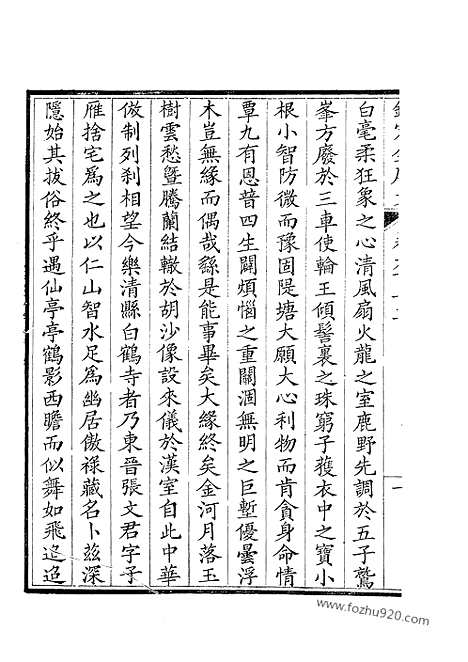 白毫柔狂象之心清風扇火龍之室鹿野先調於五子鷲
峯方廢於三車使輪王傾髻裏之珠窮子獲衣中之寶小
根小智防微而豫固隄塘大願大心利物而肯貪身命情
覃九有恩普四生闢煩惱之重關涸無明之巨塹優曇浮
木豈無緣而偶哉繇是能事畢矣大緣終矣金河月落玉
樹雲愁曁騰蘭結轍於胡沙像設來儀於漢室自此中華
倣制列刹相望今樂清縣白鶴寺者乃東晉張文君字子
雁捨宅爲之也以仁山智水足爲幽居傲祿藏名卜茲深
隱始其拔俗終乎遇仙亭亭鶴影西瞻而似舞如飛迢迢
www.fozhu920.com